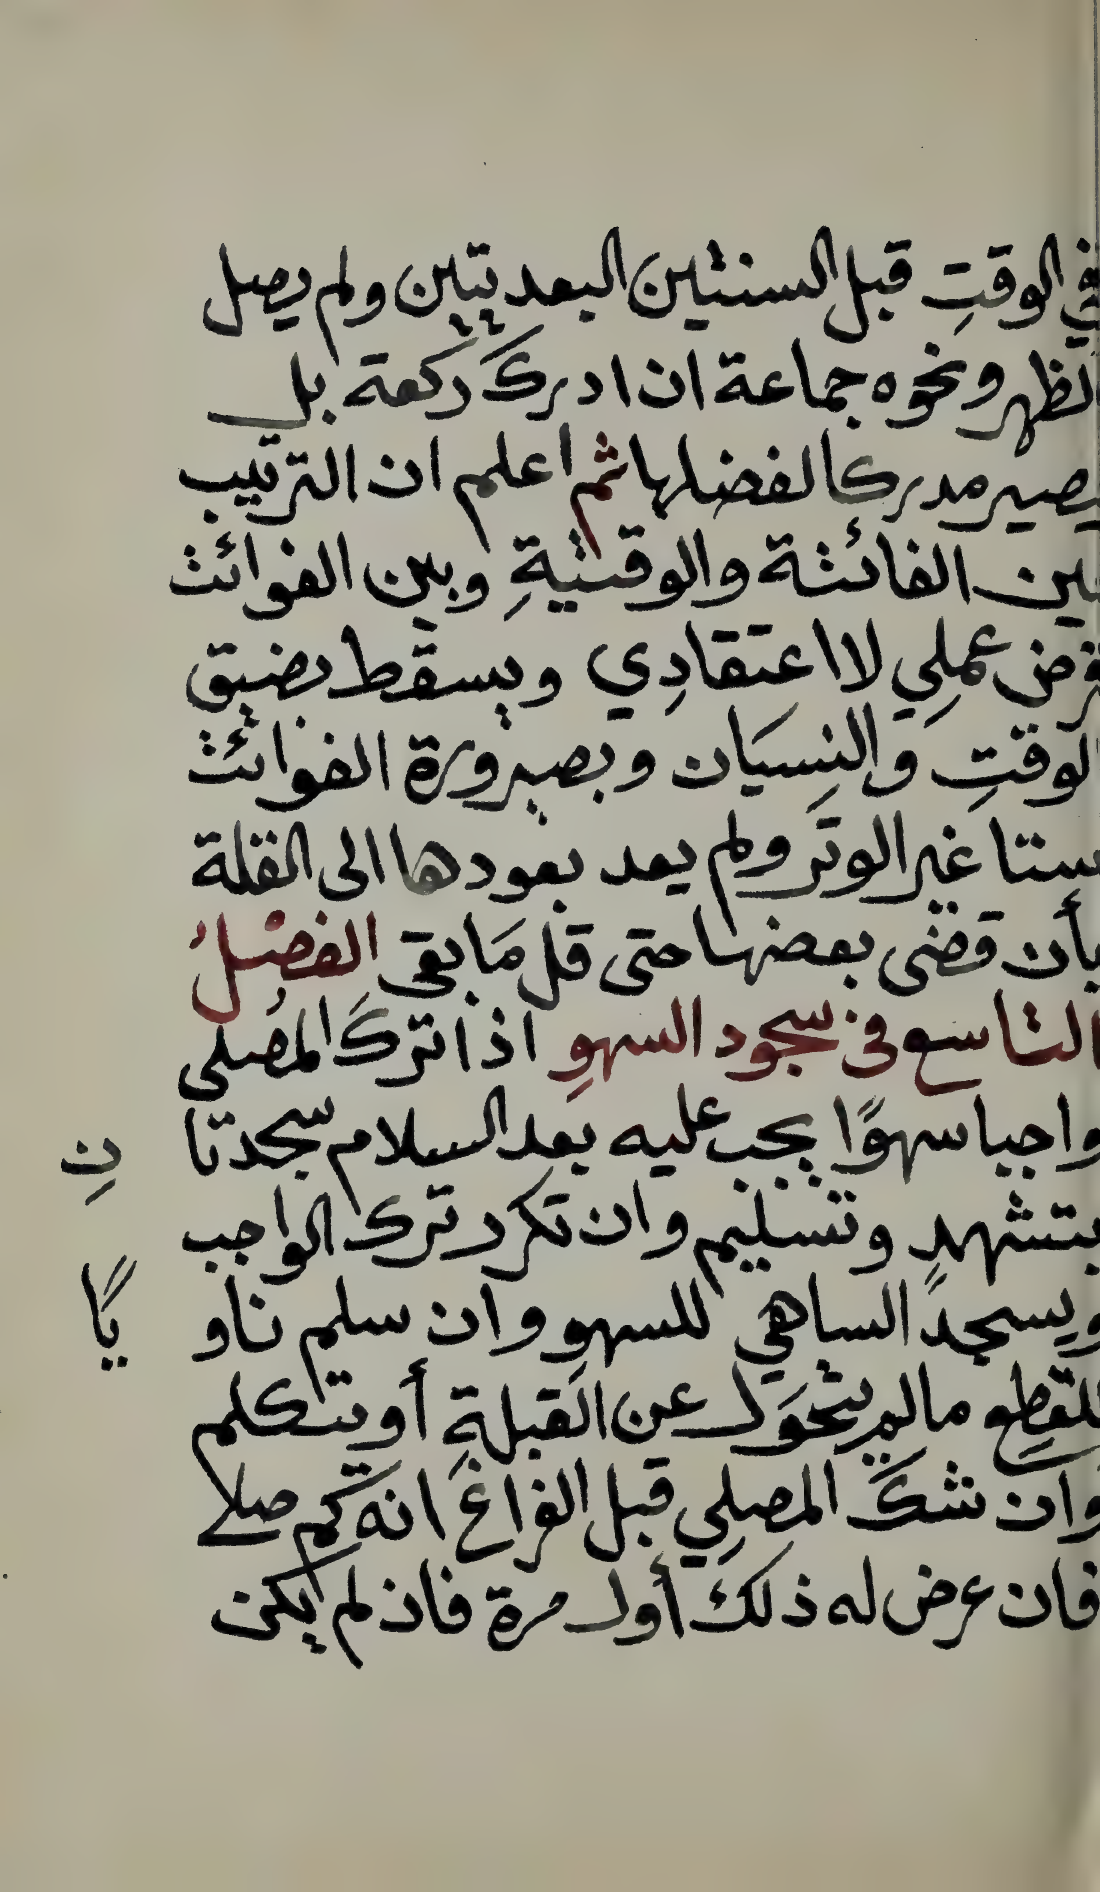 في الوقتِ قبل السنتين البعديتين ولم يصل
الظهر ونحوه جماعة ان ادرك ركعة بل
يصير مدركا لفضلها ثم اعلم ان الترتيب
بين الفائتة والوقتيةِ وبين الفوائت
فرض عملِي لا اعتقادِي ويسقط بضيق
الوقتِ والنِسيَان وبصيرورة الفوائت
ستا غير الوتر ولم يعد بعودها الى القلة
بأن قضى بعضها حتى قل مَا بقى الفصْلُ
التاسع في سجود السهوِ اذا تركَ المُصلى
واجبا سهوًا يجب عليه بعد السلام سجدتا
نِ
بتشهدٍ وتسليم وان تكرر ترك الواجب
ويسجد الساهي للسهوِ وان سلم ناو
يًا
للقطِع مالم يتحَول عن القبلةِ أو يتكلم
وان شكَ المصلِي قبل الفراغ انه كم صلے
فان عرض له ذلك أول مرة فاذ لم يكن